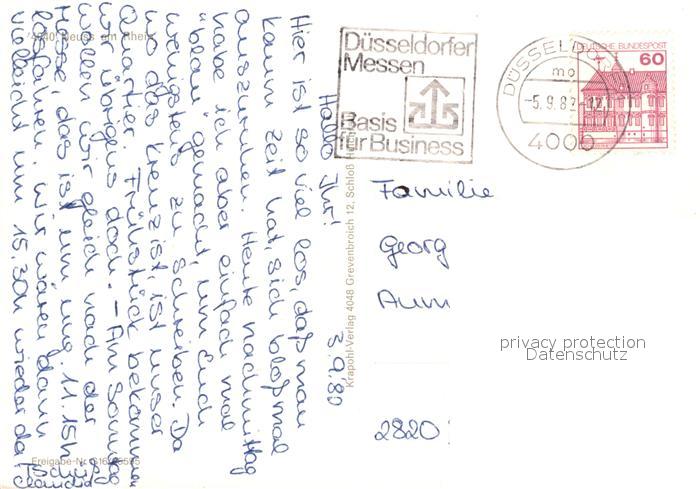 4040 Neuss am Rhein
3.9.80
Hallo Ihr!
Hier ist so viel los, daß man
kaum Zeit hat, sich bloß mal
auszuruhen. Heute nachmittag
habe ich aber einfach mal
"blau" gemacht, um Euch
wenigstens zu schreiben. Da
wo das Kreuz ist, ist unser
Quartier. Frühstück bekommen
wir übrigens doch. - Am Sonntag
wollen wir gleich nach der
Messe, das ist um ung. 11.15h
losfahren. Wir wären dann
vielleicht um 15.30h wieder da.
Tschüß
Claudia
Freigabe-Nr.
Krapohl-Verlag 4048 Grevenbroich 12, Schloß
Düsseldorfer
Messen
Basis
für Business
DÜSSELDORF
mo
-5.9.8
4000
DEUTSCHE BUNDESPOST
60
Familie
Georg
2820
privacy protection
Datenschutz